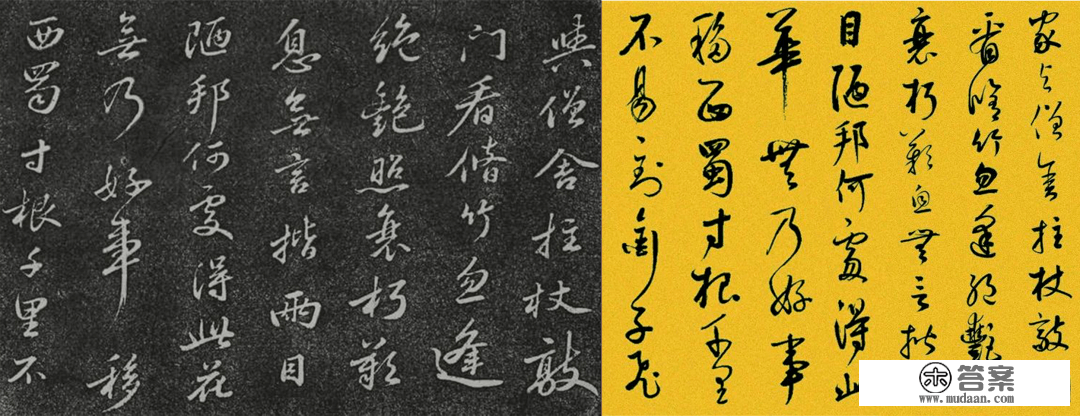 與僧舍拄杖敲
门看脩竹忽逢
絶艷照衰朽歎
息無言揩兩目
陋邦何處得此花
無乃好事移
西蜀寸根千里不
家与僧舍拄杖敲
看脩竹忽逢絶艷
衰朽歎息無言揩
目陋邦何處得此
華無乃好事
移西蜀寸根千里
不易到銜子飛
答案
www.mudaan.com